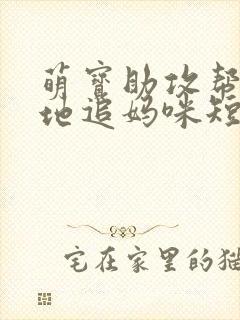 萌宝助攻帮
地追妈咪短
宅在家里的猫